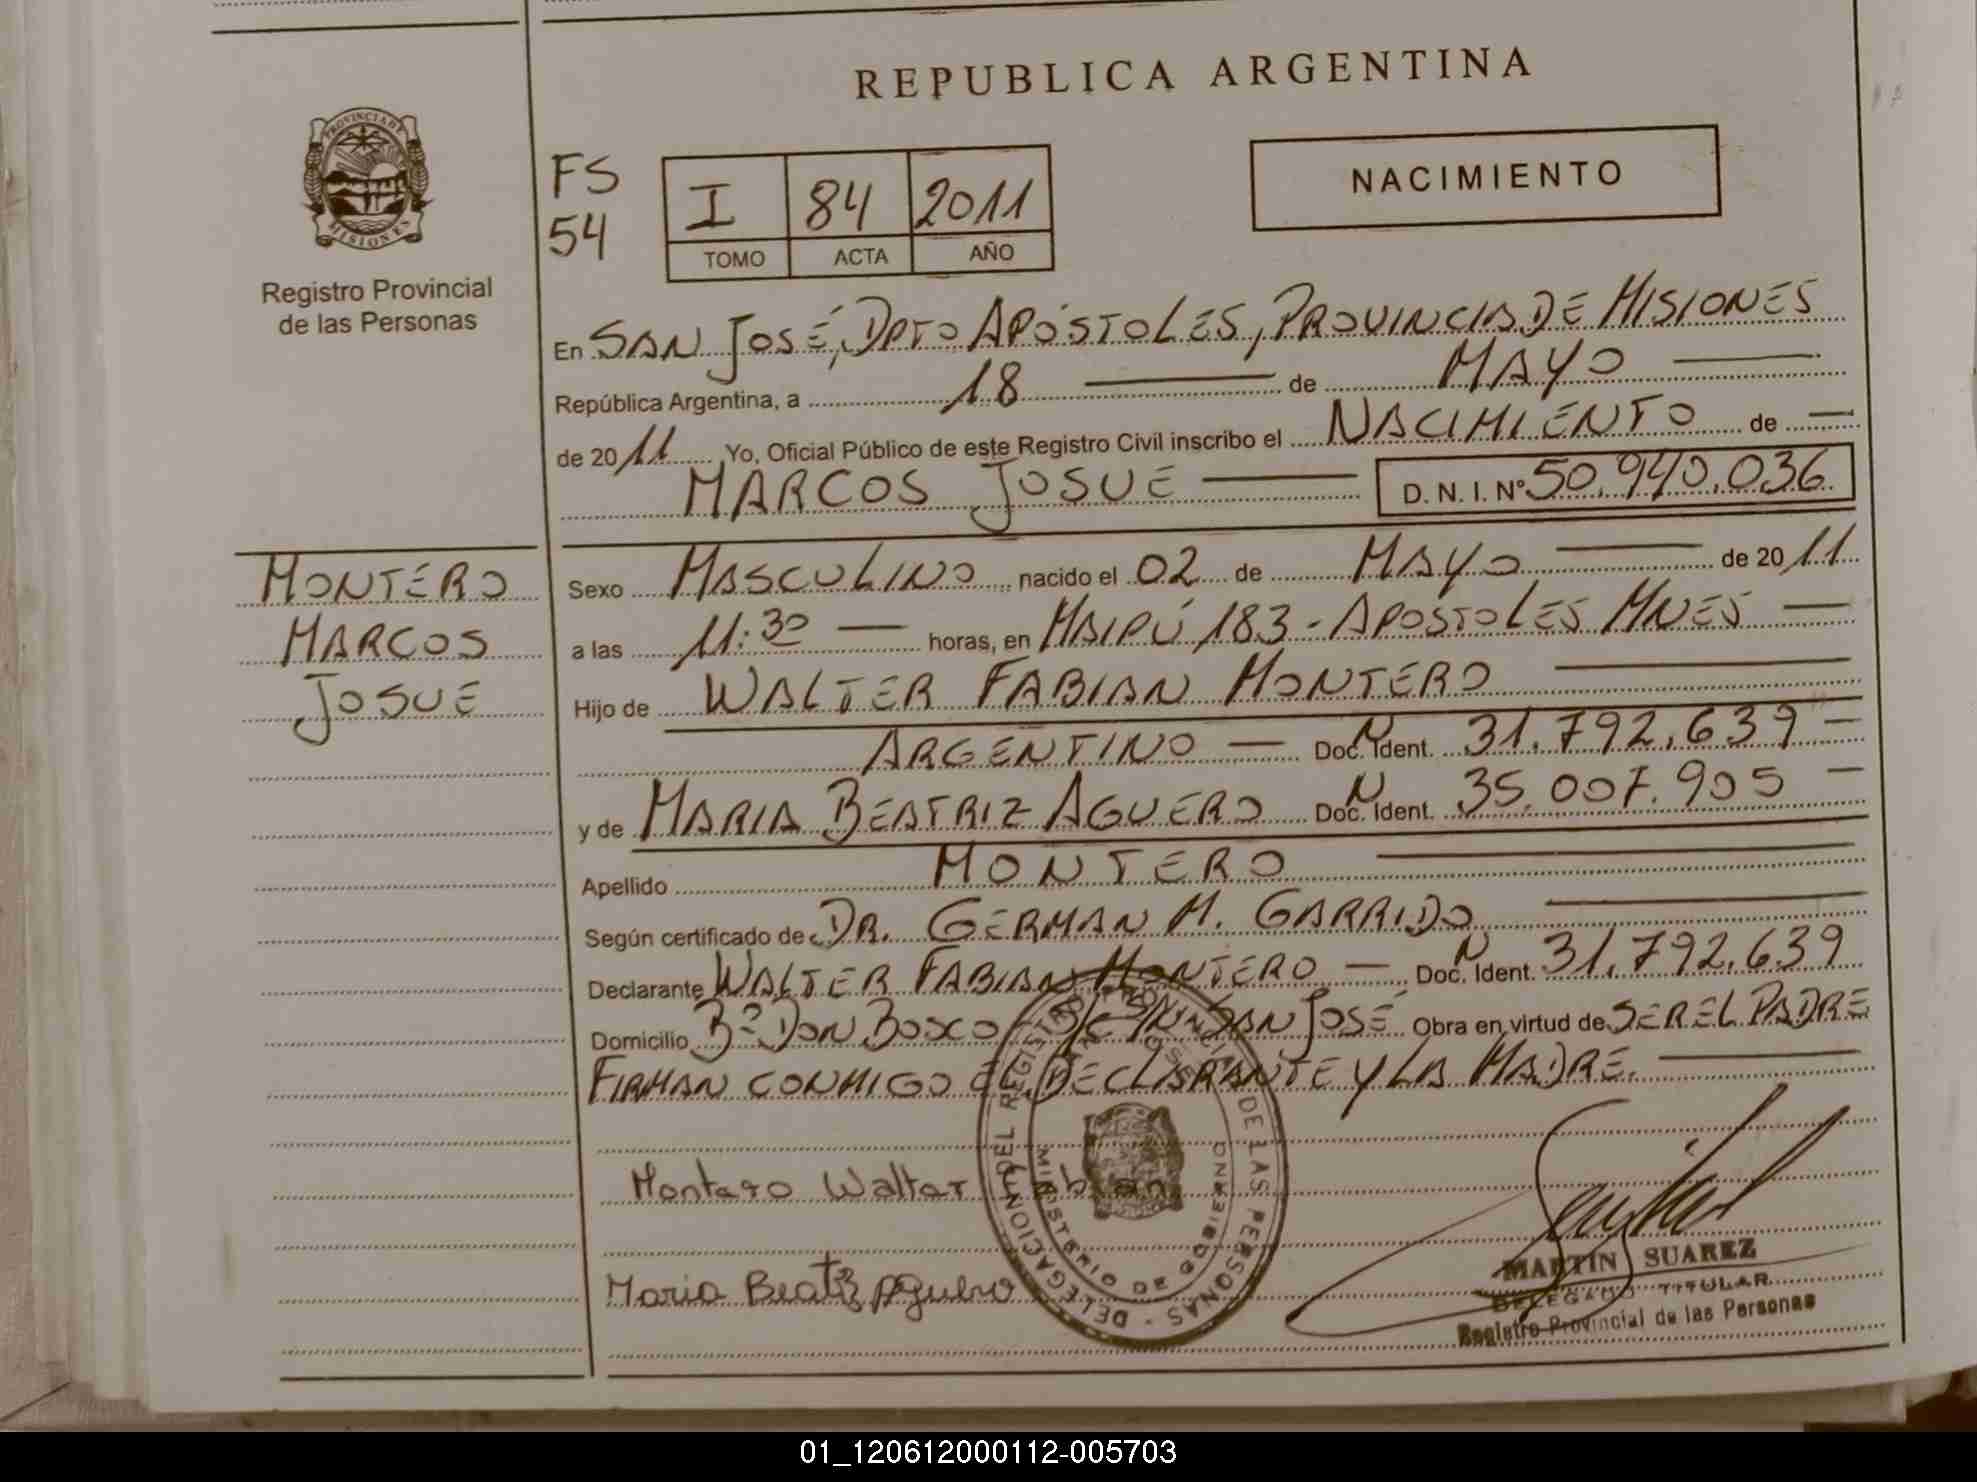 REPUBLICA ARGENTINA
PROVINCIA DE
MISIONES
Registro Provincial
de las Personas
FS
54
I 84 2011
TOMO ACTA AÑO
NACIMIENTO
En SAN JOSÉ, DPTO APÓSTOLES, PROVINCIA DE MISIONES
República Argentina, a 18 de MAYO
de 2011 Yo, Oficial Público de este Registro Civil inscribo el NACIMIENTO de
MARCOS JOSUE D. N. I. Nº 50.940.036
MONTERO
MARCOS
JOSUE
Sexo MASCULINO nacido el 02 de MAYO de 2011
a las 11:30 horas, en MAIPÚ 183 - APOSTOLES MNES
Hijo de WALTER FABIAN MONTERO
ARGENTINO Doc. N Ident. 31.792.639
y de MARIA BEATRIZ AGUERO Doc. N Ident. 35.007.905
Apellido MONTERO
Según certificado de DR. GERMAN M. GARRIDO
Declarante WALTER FABIAN MONTERO Doc. N Ident. 31.792.639
Domicilio Bº DON BOSCO SAN JOSÉ Obra en virtud de SER EL PADRE
FIRMAN CONMIGO EL DECLARANTE Y LA MADRE.
Montero Walter Fabian
Maria Beatriz Aguero
DELEGACION DEL REGISTRO PROVINCIAL DE LAS PERSONAS
MINISTERIO DE GOBIERNO
MARTIN SUAREZ
DELEGADO TITULAR
Registro Provincial de las Personas
01_120612000112-005703